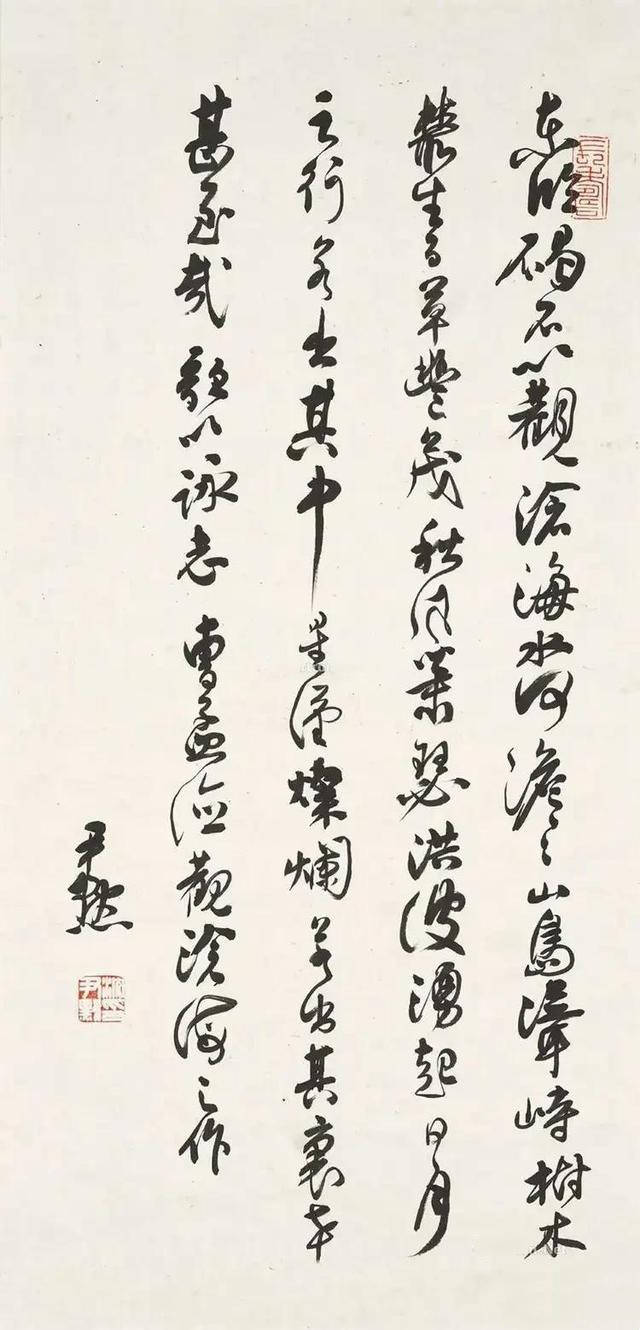 東臨碣石以觀滄海水何澹〻山島峙樹木
叢生百草豐茂秋風蕭瑟洪波湧起日月
之行若出其中星漢燦爛若出其裏幸
甚至哉歌以詠志曹孟德觀滄海之作
尹默